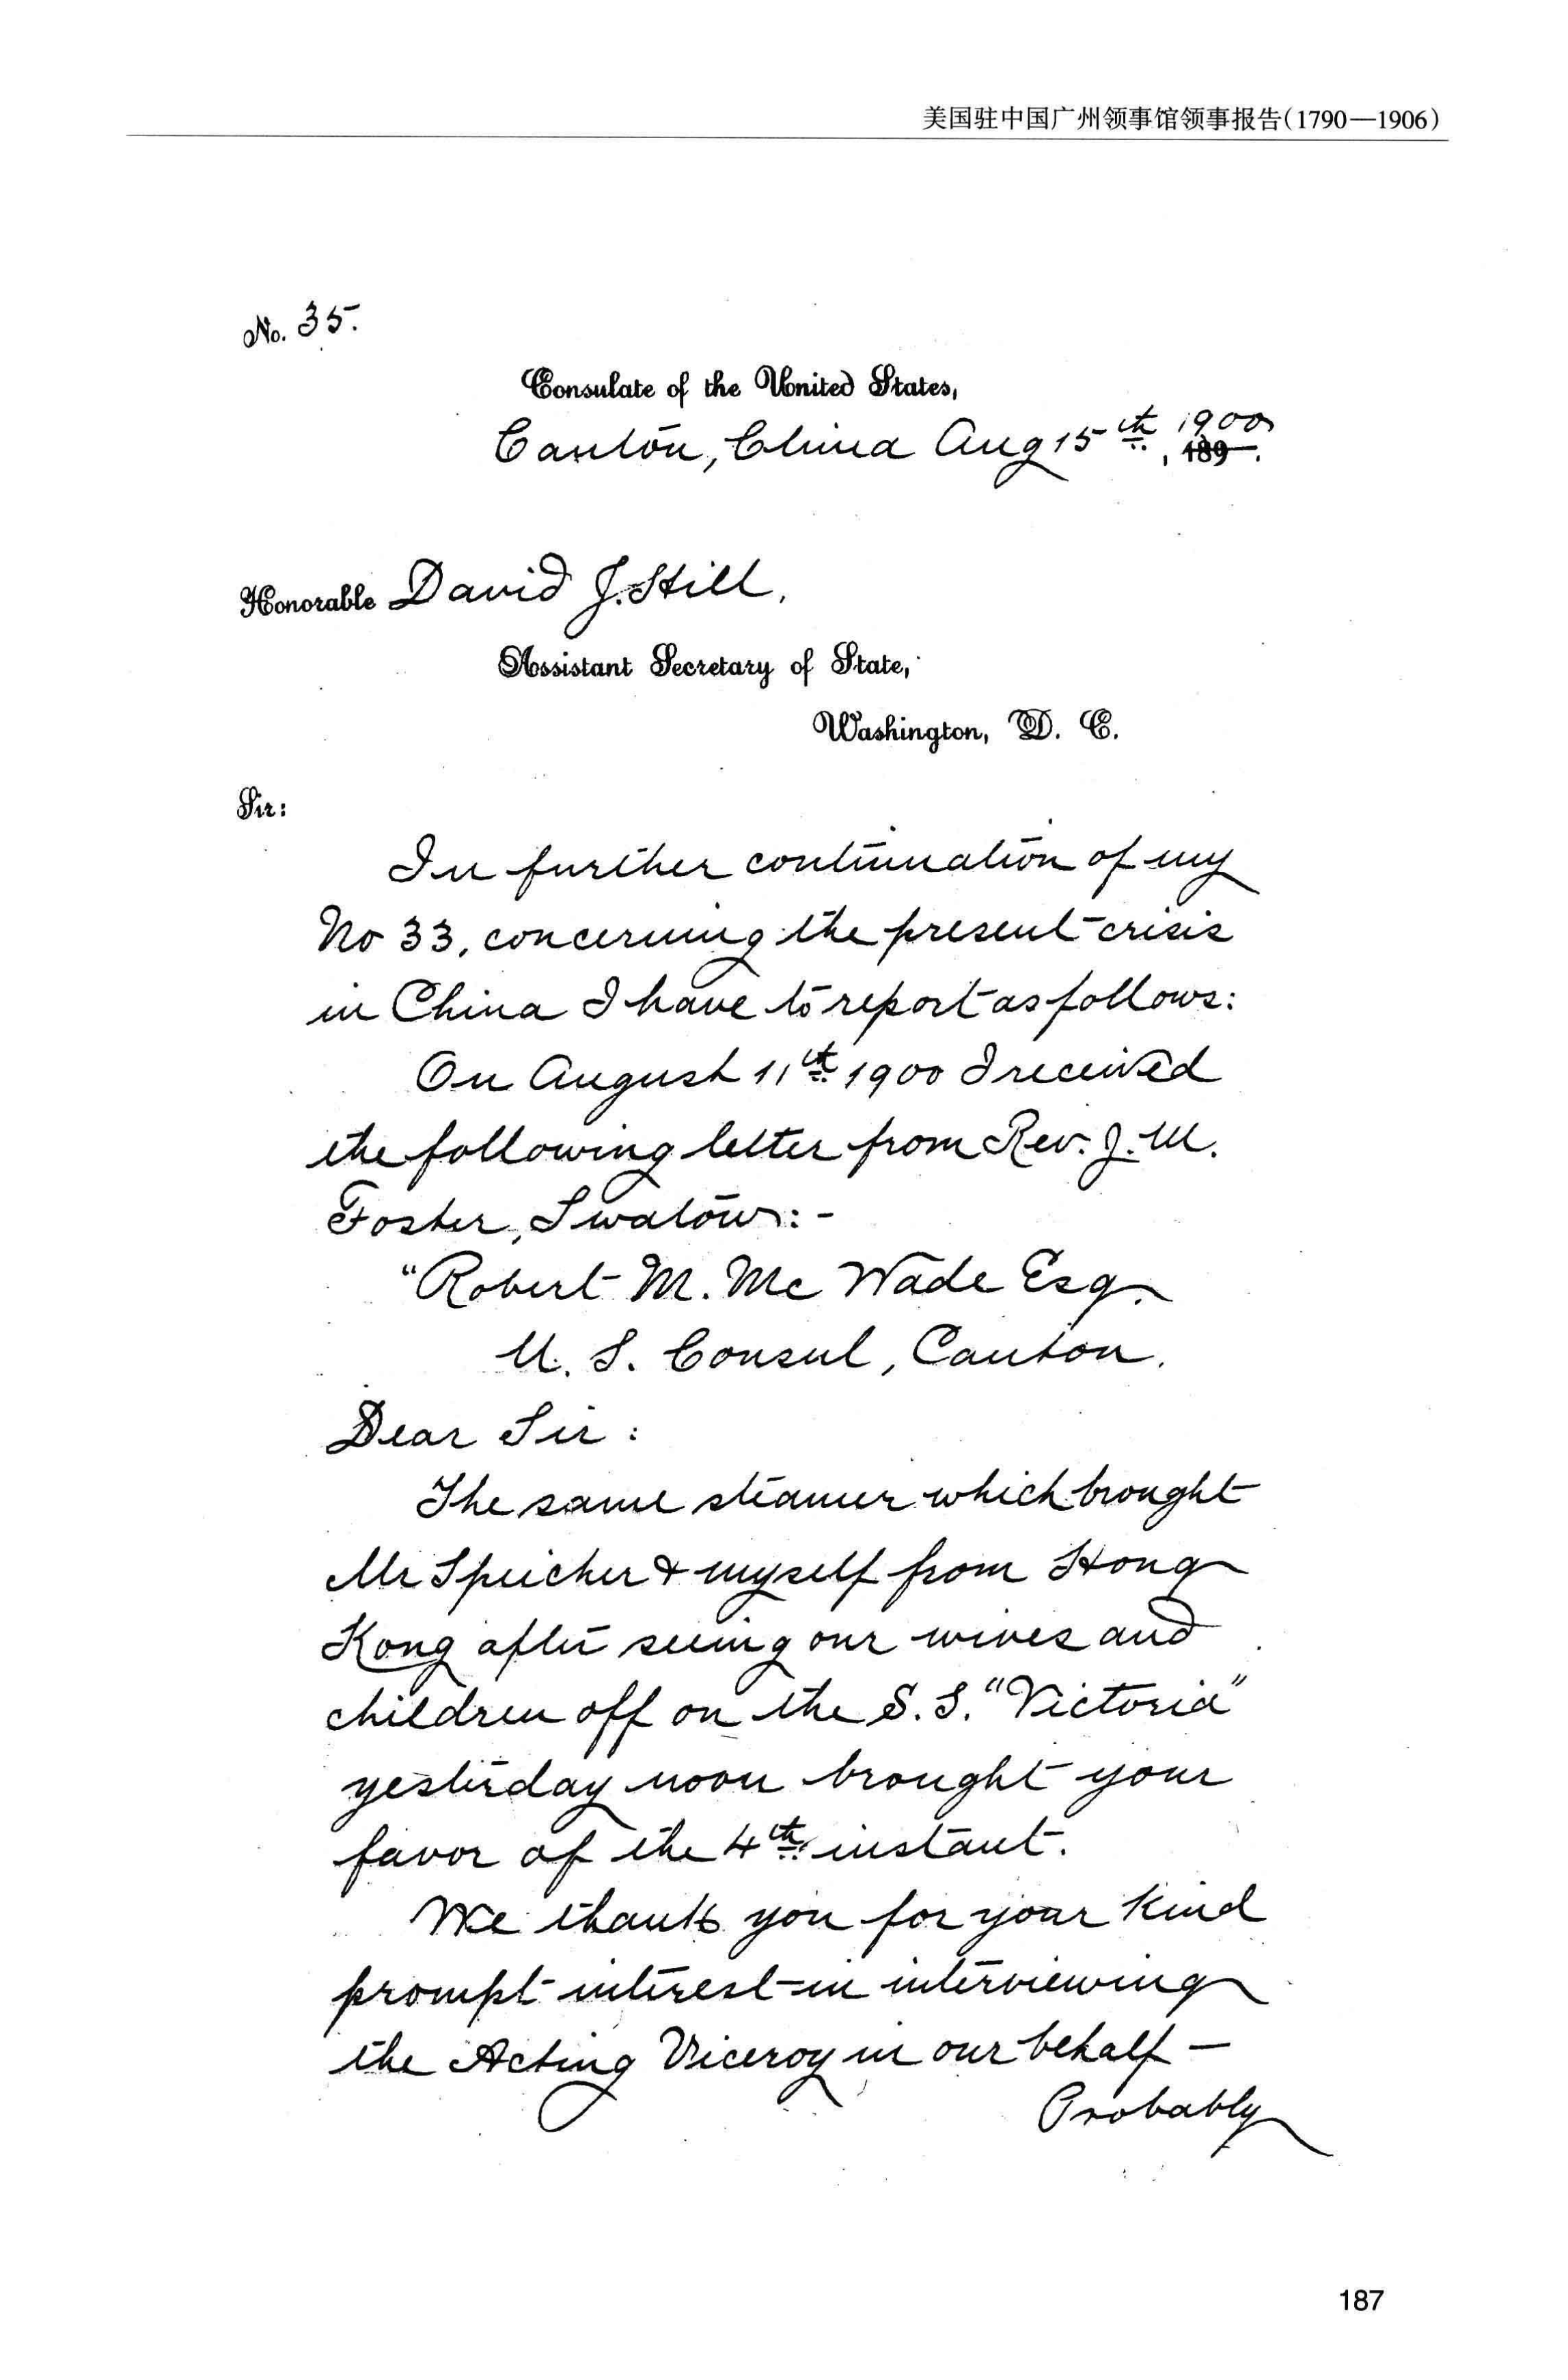 美国驻中国广州领事馆领事报告(1790—1906)
No. 35.
Consulate of the United States,
Canton, China Aug 15th, 1900
189 .
Honorable David J. Hill,
Assistant Secretary of State,
Washington, D. C.
Sir:
In further continuation of my
No 33, concerning the present crisis
in China I have to report as follows:
On August 11th 1900 I received
the following letter from Rev. J. M.
Foster, Swatow:-
"Robert M. Mc Wade Esq.
U. S. Consul, Canton.
Dear Sir:
The same steamer which brought
Mr Speicher & myself from Hong
Kong after seeing our wives and
children off on the S. S. "Victoria"
yesterday noon brought your
favor of the 4th instant.
We thank you for your kind
prompt interest in interviewing
the Acting Viceroy in our behalf—
Probably
187